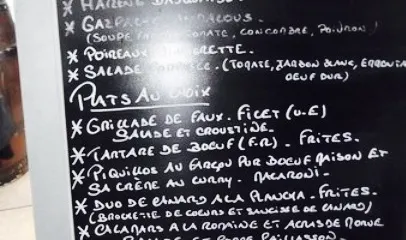 * HARENG
* GAZPACHO ANDALOUS.
(SOUPE TOMATE, CONCOMBRE, POIVRON)
* POIREAUX
* SALADE (TOMATE, JAMBON BLANC,
OEUF DUR)
PLATS AU CHOIX
* GRILLADE DE FAUX-FILET (U-E)
SALADE ET CROUSTINE.
* TARTARE DE BOEUF (FR) - FRITES.
* PIQUILLOS AU FARÇOU PUR BOEUF MAISON ET
SA CRÈME AU CURRY - MACARONI -
* DUO DE CANARD A LA PLANCHA - FRITES.
(BROCHETTE DE COEURS ET SAUCISSE DE CANARD)
* CALAMARS A LA ROMAINE ET ACRAS DE MORUE
SALADE ET POMME PAILLASSON